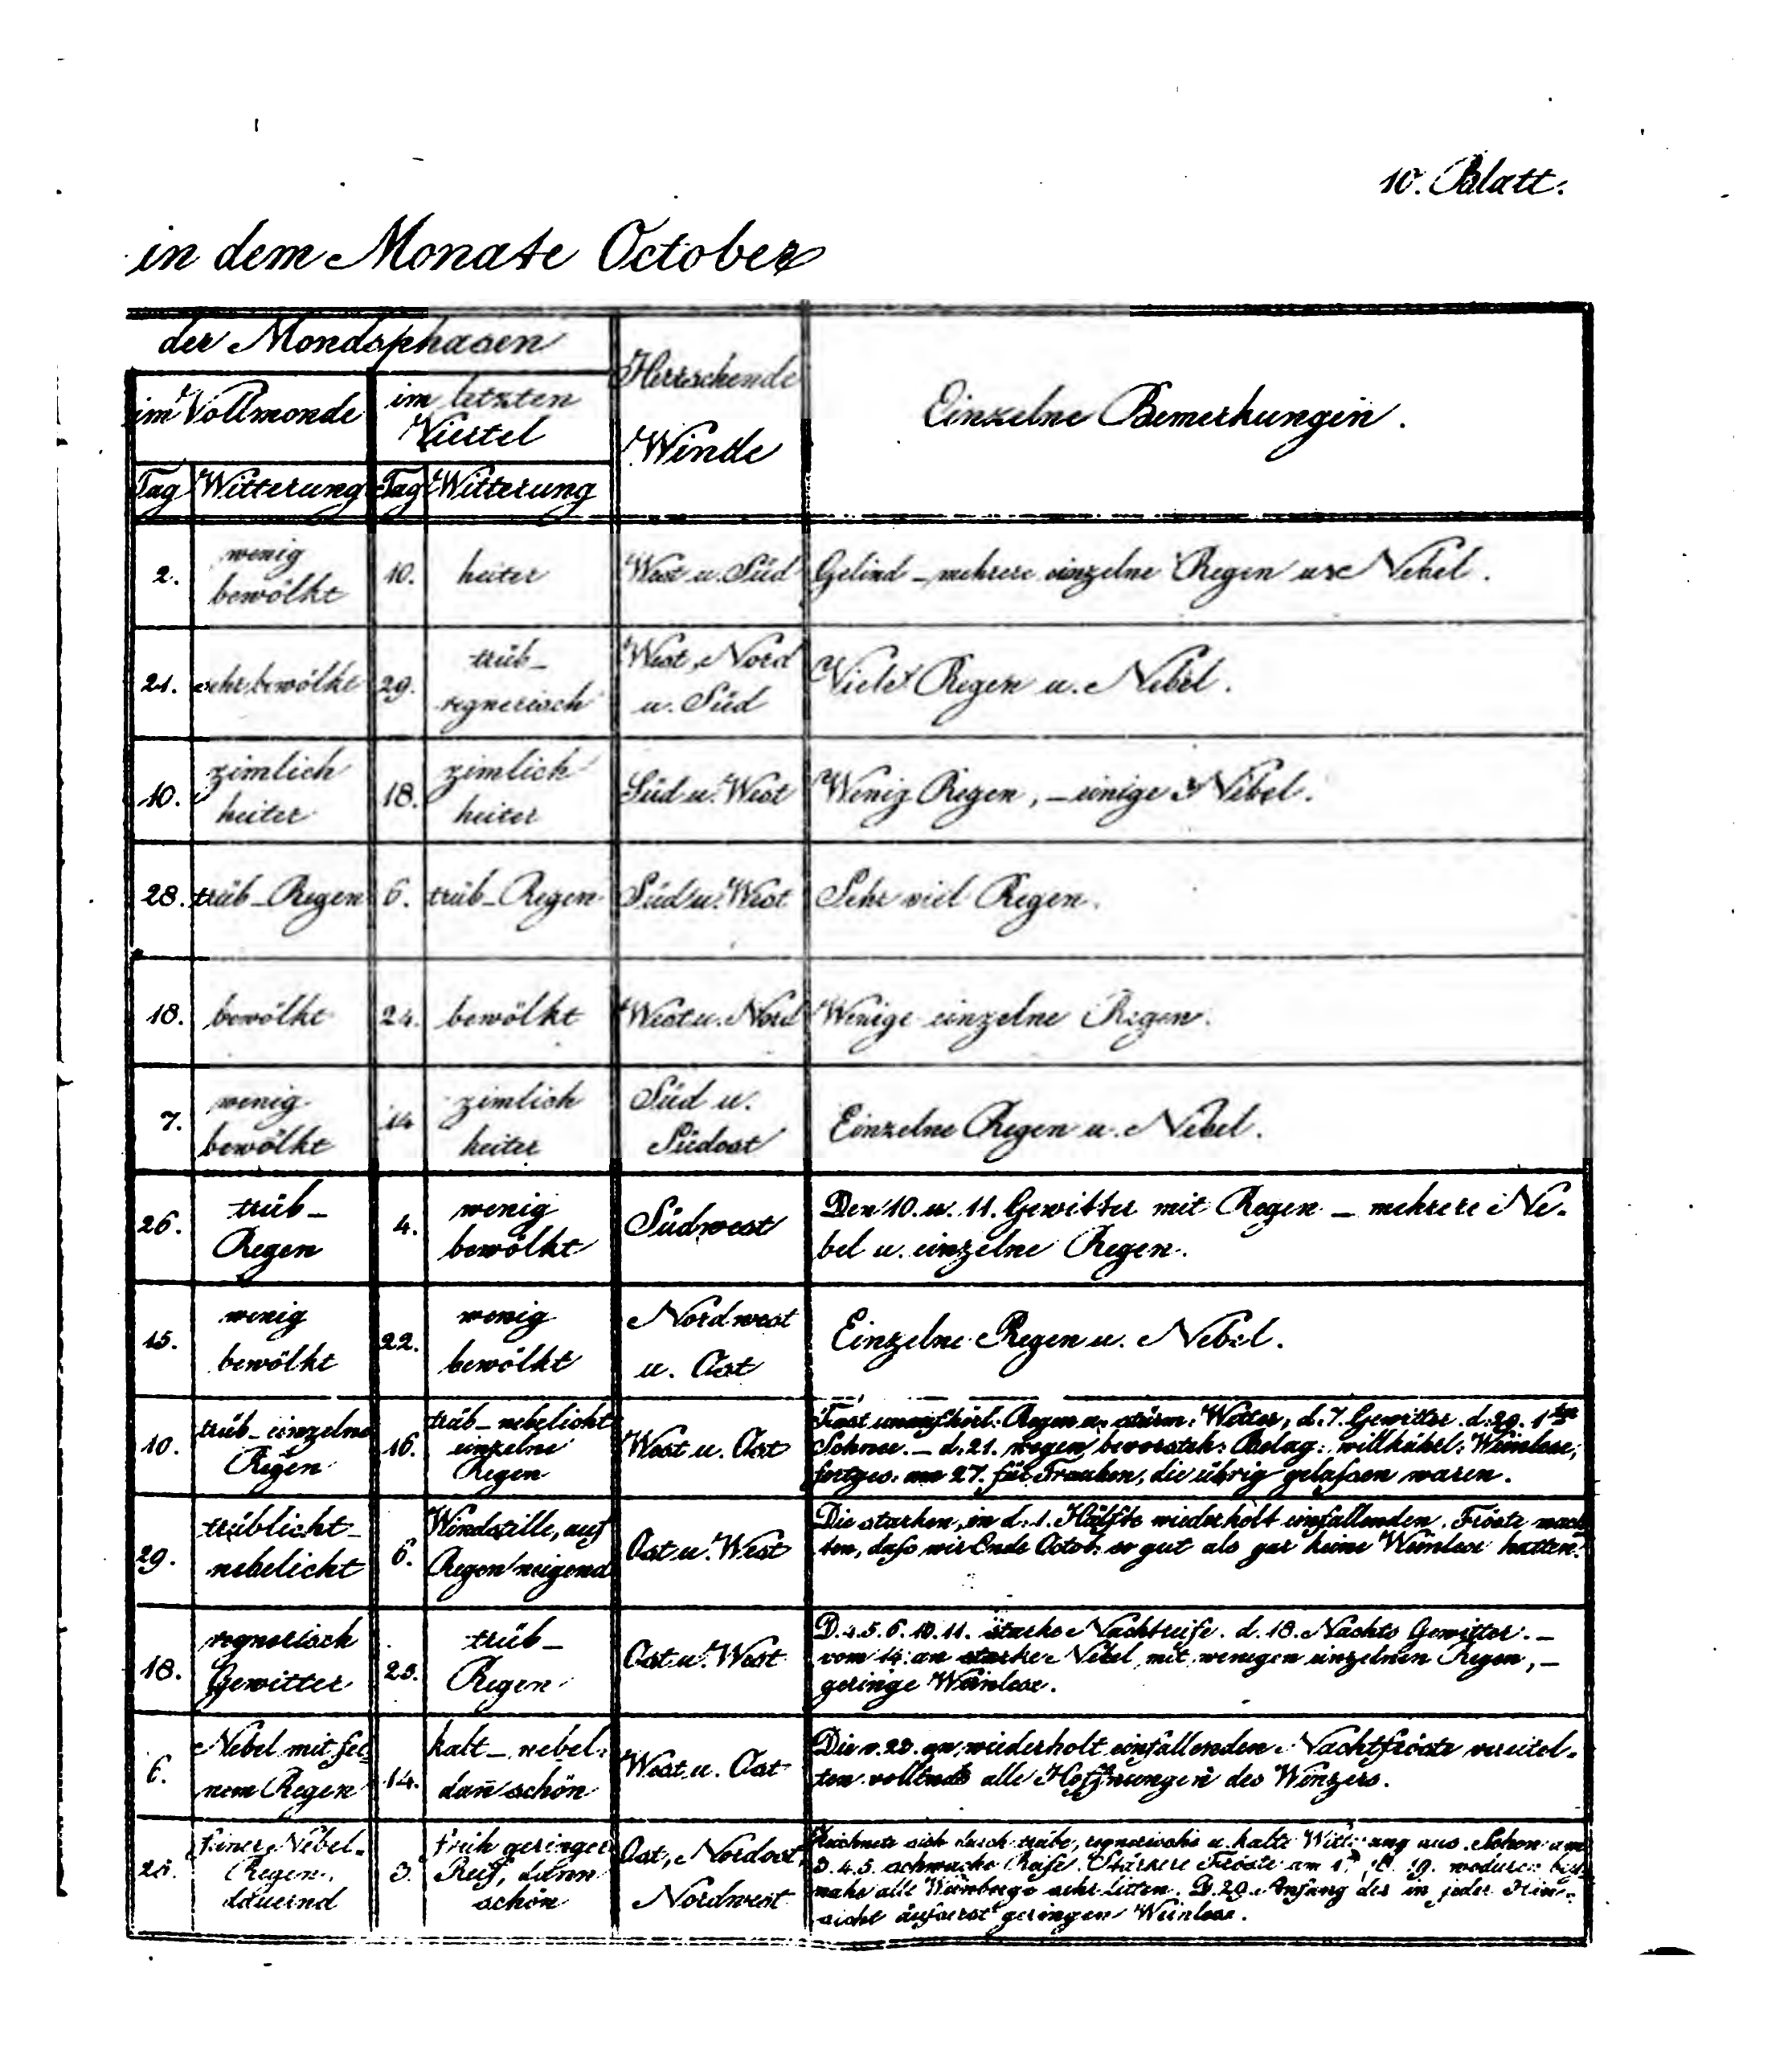 10. Blatt.
in dem Monate October
der Mondsphasen
Herrschende
Winde
Einzelne Bemerkungen.
im Vollmonde
im letzten
Viertel
Tag Witterung Tag Witterung
2. wenig bewölkt 10. heiter West u. Süd Gelind – mehrere einzelne Regen u. Nebel.
21. sehr bewölkt 29. trüb – regnerisch West, Nord u. Süd Viele Regen u. Nebel.
10. zimlich heiter 18. zimlich heiter Süd u. West Wenig Regen, – einige Nebel.
28. trüb – Regen 6. trüb – Regen Süd u. West Sehr viel Regen.
18. bewölkt 24. bewölkt West u. Nord Wenige einzelne Regen.
7. wenig bewölkt 14 zimlich heiter Süd u. Südost Einzelne Regen u. Nebel.
26. trüb – Regen 4. wenig bewölkt Südwest Den 10. u. 11. Gewitter mit Regen – mehrere Ne-
bel u. einzelne Regen.
15. wenig bewölkt 22. wenig bewölkt Nordwest u. Ost Einzelne Regen u. Nebel.
10. trüb – einzelne Regen 16. trüb – nebelicht einzelne Regen West u. Ost Fast unaufhörl. Regen u. stürm. Wetter, d. 7. Gewitter. d. 29. 1ter
Schnee. – d. 21. wegen bevorsteh. Belag. Weinlese,
fortges. am 27. für Trauben, die übrig gelassen waren.
29. trüblicht – nebelicht 6. Windstille, auf Regen neigend Ost u. West Die starken, in d. 1. Hälfte wiederholt einfallenden Fröste mach-
ten, dass wir Ende Octob. so gut als gar keine Weinlese hatten.
18. regnerisch Gewitter 25. trüb – Regen Ost u. West D. 4. 5. 6. 10. 11. starke Nachtreife. d. 18. Nachts Gewitter. –
vom 14. an starke Nebel mit wenigen einzelnen Regen, –
geringe Weinlese.
6. Nebel mit fei-
nem Regen 14. kalt – nebel. dañ schön West u. Ost Die v. 20. an wiederholt einfallenden Nachtfröste vereitel-
ten vollends alle Hoffnungen des Winzers.
25. feiner Nebel-
Regen, dauernd 3. Früh geringer Reif, dann schön Ost, Nordost, Nordwest Zeichnete sich durch trübe, regnerische u. kalte Witterung aus. Schon am
3. 4. 5. schwache Reife. Stärkere Fröste am 19. wodurch bei-
nahe alle Weinberge sehr litten. D. 29. Anfang der in jeder Hin-
sicht äusserst geringen Weinlese.